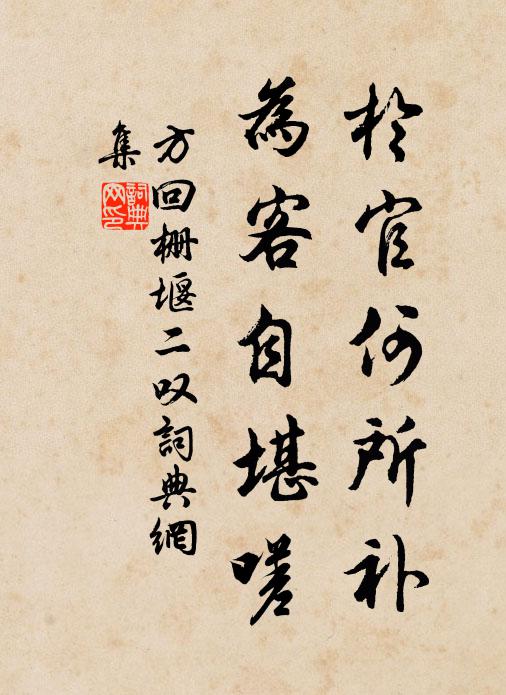 於官何所补
為客自堪嗟
方回栅堰二叹詞典網
集
詞典
网印